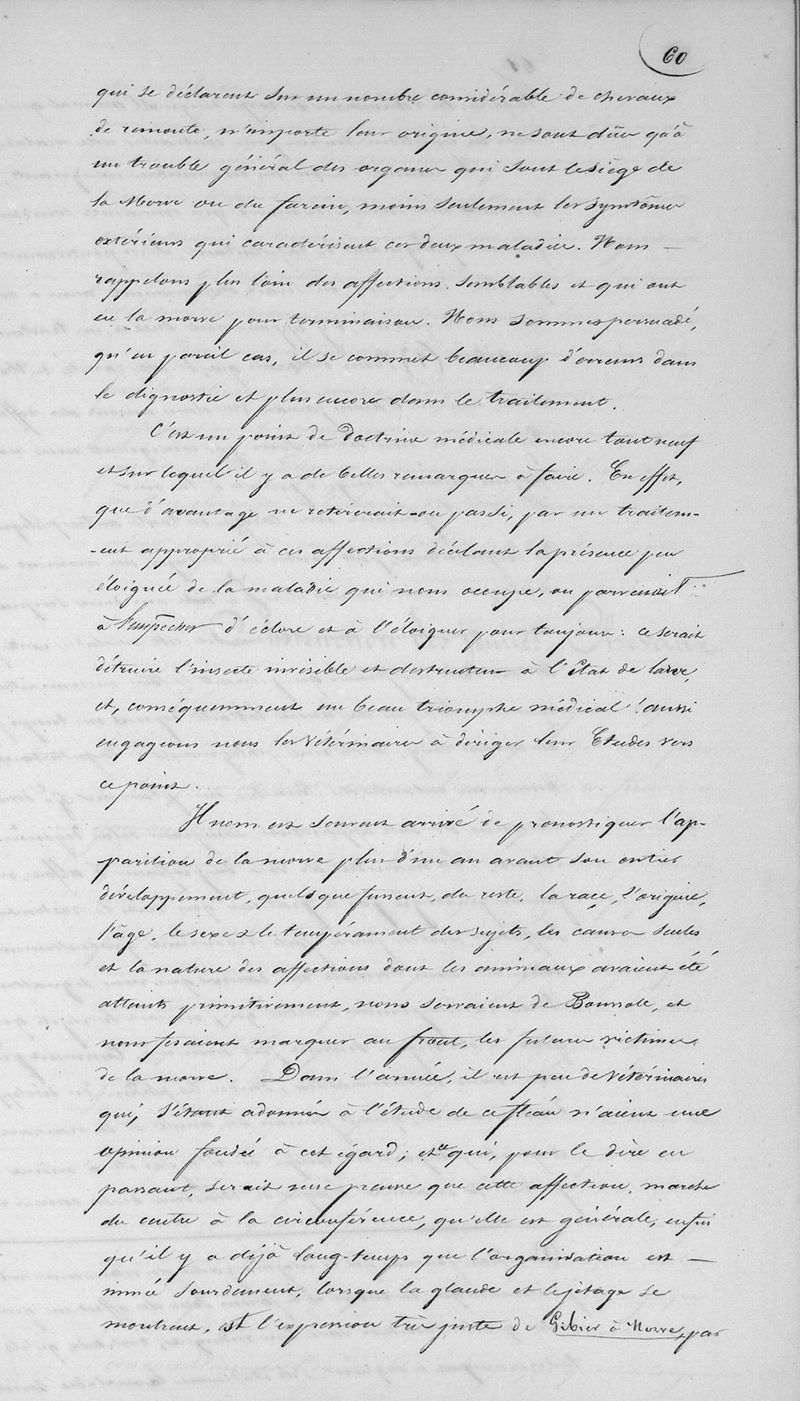 60
qui se déclarent sur un nombre considérable de chevaux
de remonte, n'importe leur origine, ne sont dûes qu'à
un trouble général des organes qui sont le siège de
la Morve ou du farcin, moins seulement les symtômes
extérieurs qui caractérisent ces deux maladies. Nous —
rappelons plus loin des affections semblables et qui ont
eu la morve pour terminaison. Nous sommes persuadé,
qu'en pareil cas, il se commet beaucoup d'erreurs dans
le dignostic et plus encore dans le traitement.
C'est un point de doctrine médicale encore tout neuf
et sur lequel il y a de belles remarques à faire. En effet,
que d'avantage ne retirerait-on pas si, par un traitem-
-ent approprié à ces affections décélant la présence peu
éloignée de la maladie qui nous occupe, on parvenait
à l'empêcher d'éclore et à l'éloigner pour toujours : ce serait
détruire l'insecte invisible et destructeur à l'état de larve,
et, conséquemment un beau triomphe médical ! aussi
engageons nous les vétérinaires à diriger leur Etudes vers
ce point.
Il nous est souvent arrivé de pronostiquer l'ap-
parition de la morve plus d'un an avant son entier
développement, quels que fussent, du reste, la race, l'origine,
l'âge, le sexe et le tempérament des sujets, les causes seules
et la nature des affections dont les animaux avaient été
atteints primitivement, nous servaient de Boussole, et
nous fesaient marquer au front, les futures victimes
de la morve. Dans l'armée, il est peu de vétérinaires
qui, s'étant adonnés à l'étude de ce fléau n'aient une
opinion fondée à cet égard; et ce qui, pour le dire en
passant, serait une preuve que cette affection, marche
du centre à la circonférence, qu'elle est générale, enfin
qu'il y a déjà long-temps que l'organisation est —
minée sourdement, lorsque la glande et le jetage se
montrent, et l'expression très juste de Gibier à Morve, par